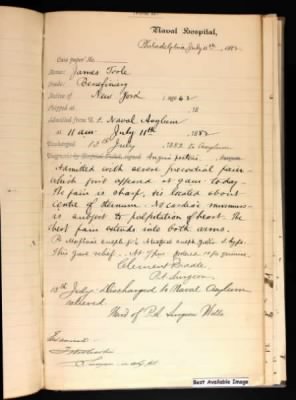 Naval Hospital,
Philadelphia July 11th, 1882
Case paper No.
Name: James Toole
Grade: Beneficiary
Native of New York; age 62
Shipped at , 18
Admitted from U.S. Naval Asylum
at 11 am July 11th 1882
Discharged 13th July 1882 to Asylum
Diagnosis Angina pectoris
Admitted with severe precordial pain
which first appeared at 9 am today.
The pain is sharp, is located about
centre of sternum. No cardiac murmurs
is subject to palpitation of heart. The
pain extends into both arms.
This gave relief. At 7 pm
Clement Biddle
P.A. Surgeon.
13th July. Discharged to Naval Asylum
relieved
P.A. Surgeon Wells
Examined
Surgeon
Best Available Image